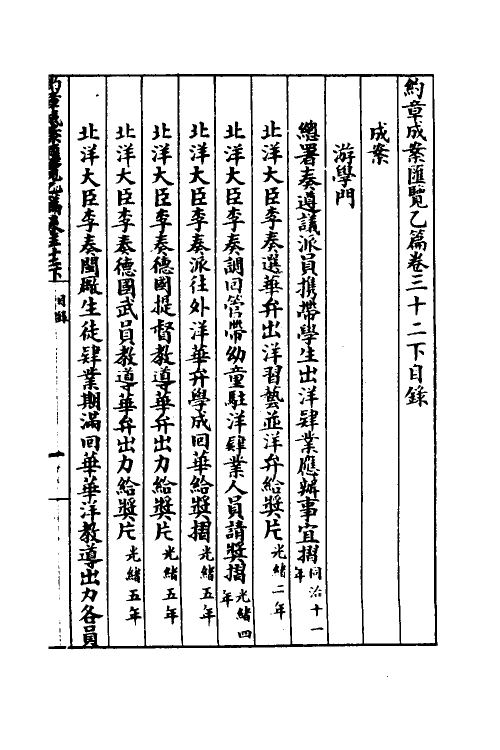 約章成案匯覽乙篇卷三十二下目錄
成案
游學門
總署奏遵議派員攜帶學生出洋肄業應辦事宜摺同治十一年
北洋大臣李奏選華弁出洋習藝並洋弁給獎片光緒二年
北洋大臣李奏調回管帶幼童駐洋肄業人員請獎摺光緒四年
北洋大臣李奏派往外洋華弁學成回華給獎摺光緒五年
北洋大臣李奏德國提督教導華弁出力給獎片光緒五年
北洋大臣李奏德國武員教導華弁出力給獎片光緒五年
北洋大臣李奏閩廠生徒肄業期滿回華華洋教導出力各員
約章成案匯覽乙篇卷三十二下
目錄
一